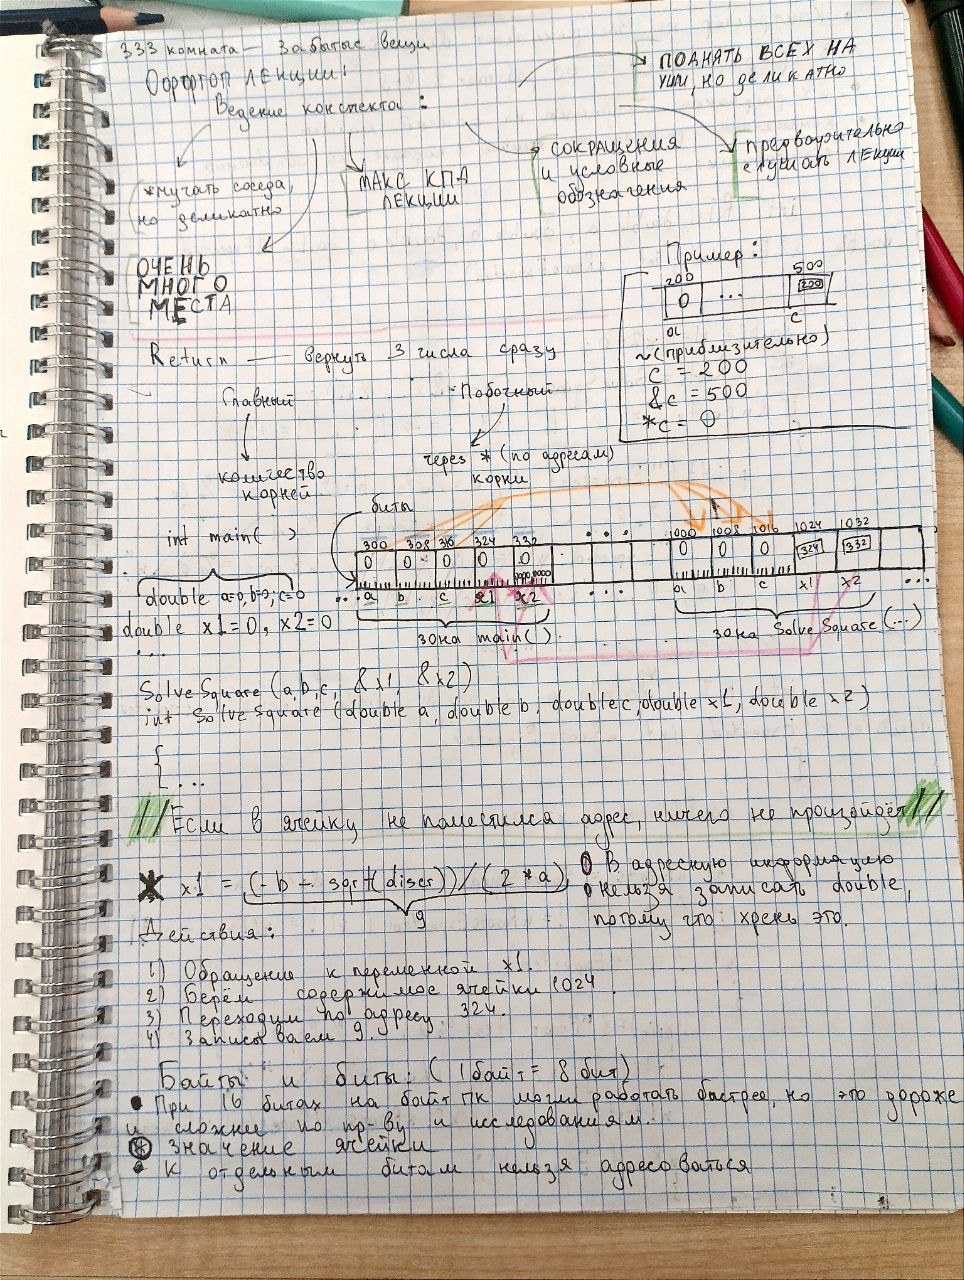 333 комната — забытые вещи
Оффтоп лекции!
Ведение конспекта :
ПОДНЯТЬ ВСЕХ НА
УШИ, НО ДЕЛИКАТНО
*мучать соседа,
но деликатно
МАКС КПД
ЛЕКЦИИ
СОКРАЩЕНИЯ
и условные
обозначения
предворительно
слушать лекции
ОЧЕНЬ
МНОГО
МЕСТА
Пример:
200 500
0 ... 200
a c
~(приблизительно)
c = 200
&c = 500
*c = 0
Return — вернуть 3 числа сразу
Главный
Побочный
количество
корней
через * (по адресам)
корни
биты
int main( )
300 308 316 324 332 ... 1000 1008 1016 1024 1032
0 0 0 0 0 0 0 0 324 332
... a b c x1 x2 ... a b c x1 x2 ...
double a=0, b=0; c=0
double x1=0, x2=0
...
зона main( )
зона SolveSquare(...)
SolveSquare (a, b, c, &x1, &x2)
int SolveSquare (double a, double b, double c, double x1, double x2)
{
...
// Если в ячейку не поместился адрес, ничего не произойдёт //
* x1 = (-b - sqrt(discr))/(2*a)
9
В адресную информацию
нельзя записать double,
потому что хрень это.
Действия:
1) Обращение к переменной x1.
2) Берём содержимое ячейки 1024.
3) Переходим по адресу 324.
4) Записываем 9.
Байты и биты: (1 байт = 8 бит)
• При 16 битах на байт ПК могли работать быстрее, но это дороже
и сложнее по пр-ву и исследованиям.
* значение ячейки
• К отдельным битам нельзя адресоваться